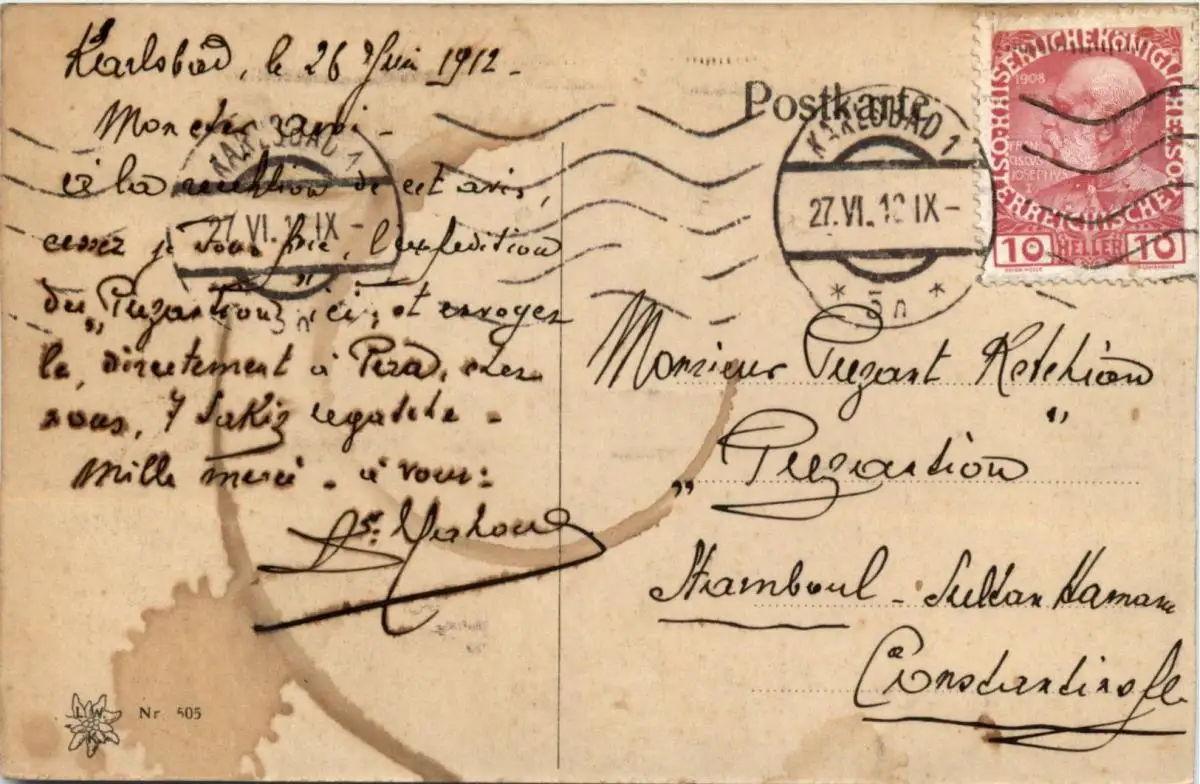 Karlsbad, le 26 Juin 1912 -
Mon cher ami -
à la réception de cet avis,
cessez je vous prie, l'expédition
du "Puzantion" ici, et envoyez
le, directement à Pera, chez
nous, 7 Sakiz
Mille merci - à vous:
Postkarte
KARLSBAD 1
27.VI. 12 IX -
* 5n *
KARLSBAD 1
27.VI. 12 IX -
KAISERLICHE KÖNIGLICHE ÖSTERREICHISCHE POST
1908
10 HELLER 10
Monsieur Puzant Ketchian
"Puzantion"
Stamboul - Sultan Hamam
Constantinople
Nr 505